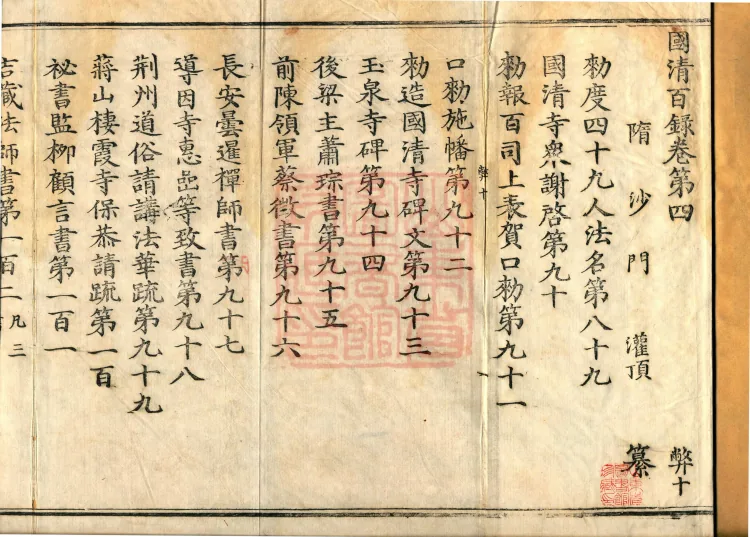 國清百録卷第四 弊十
隋沙門灌頂 纂
勑度四十九人法名第八十九
國清寺衆謝啓第九十
勑報百司上表賀口勑第九十一
弊十
口勑施幡第九十二
勑造國清寺碑文第九十三
玉泉寺碑第九十四
後梁主蕭琮書第九十五
前陳領軍蔡徴書第九十六
長安曇暹禪師書第九十七
導因寺惠嵓等致書第九十八
荆州道俗請講法華疏第九十九
蔣山棲霞寺保恭請疏第一百
祕書監柳顧言書第一百一
吉藏法師書第一百二 凡三